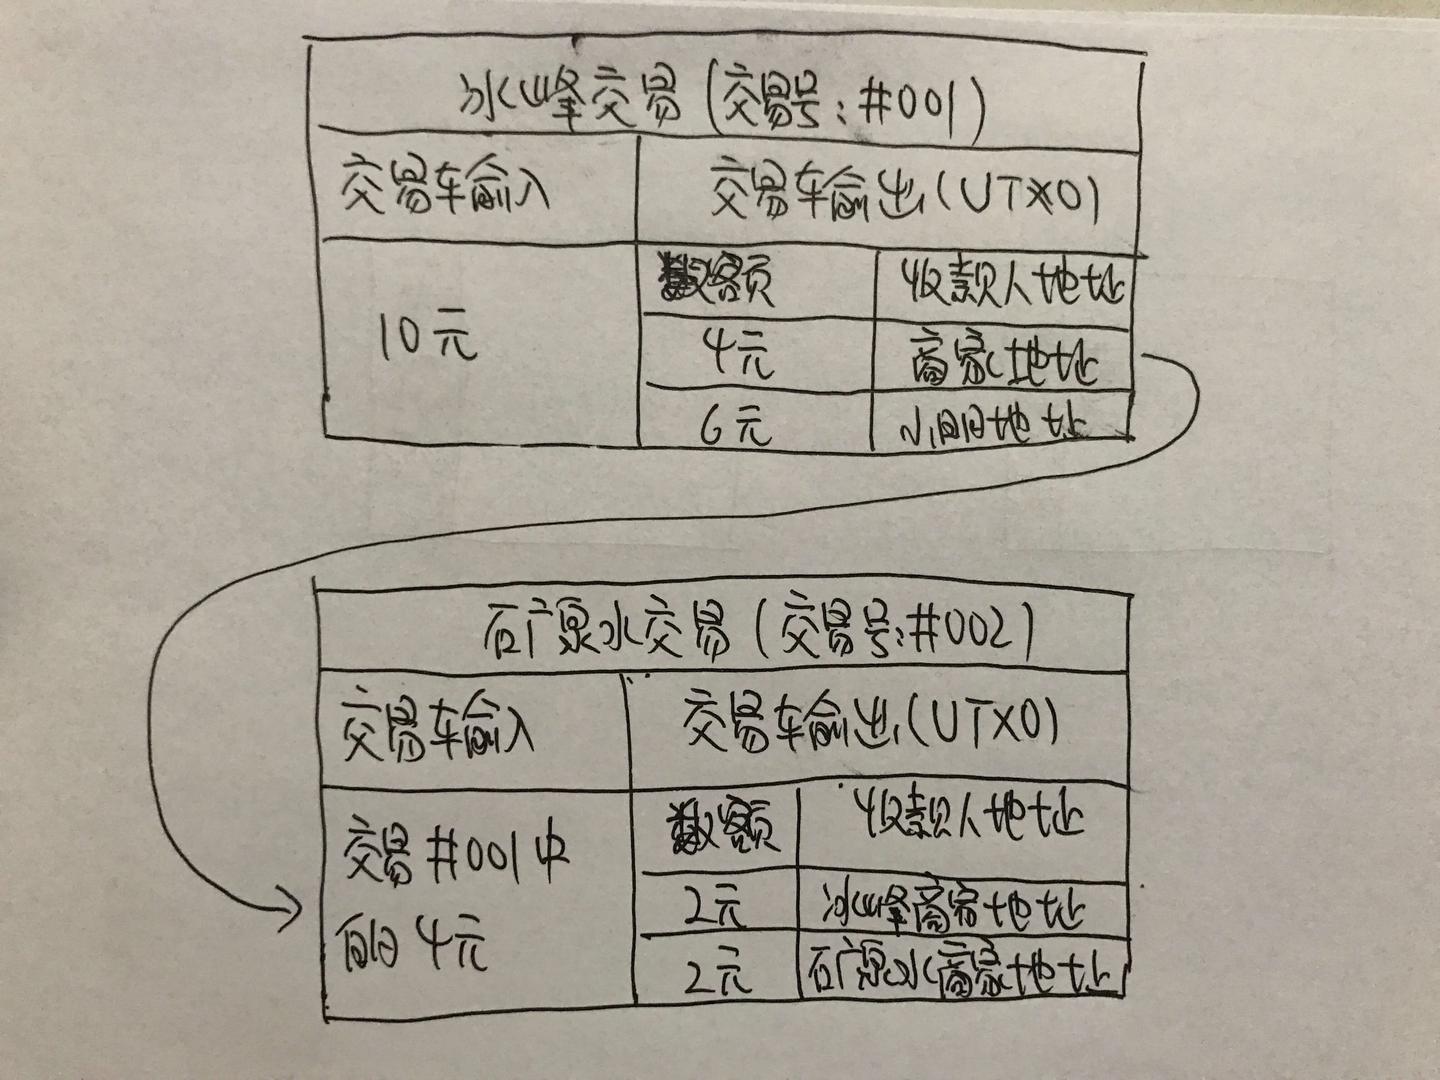 冰峰交易(交易号:#001)
交易输入 交易输出(UTXO)
数额 收款人地址
10元
4元 商家地址
6元 小明地址
矿泉水交易(交易号:#002)
交易输入 交易输出(UTXO)
数额 收款人地址
交易#001中
的4元
2元 冰峰商家地址
2元 矿泉水商家地址